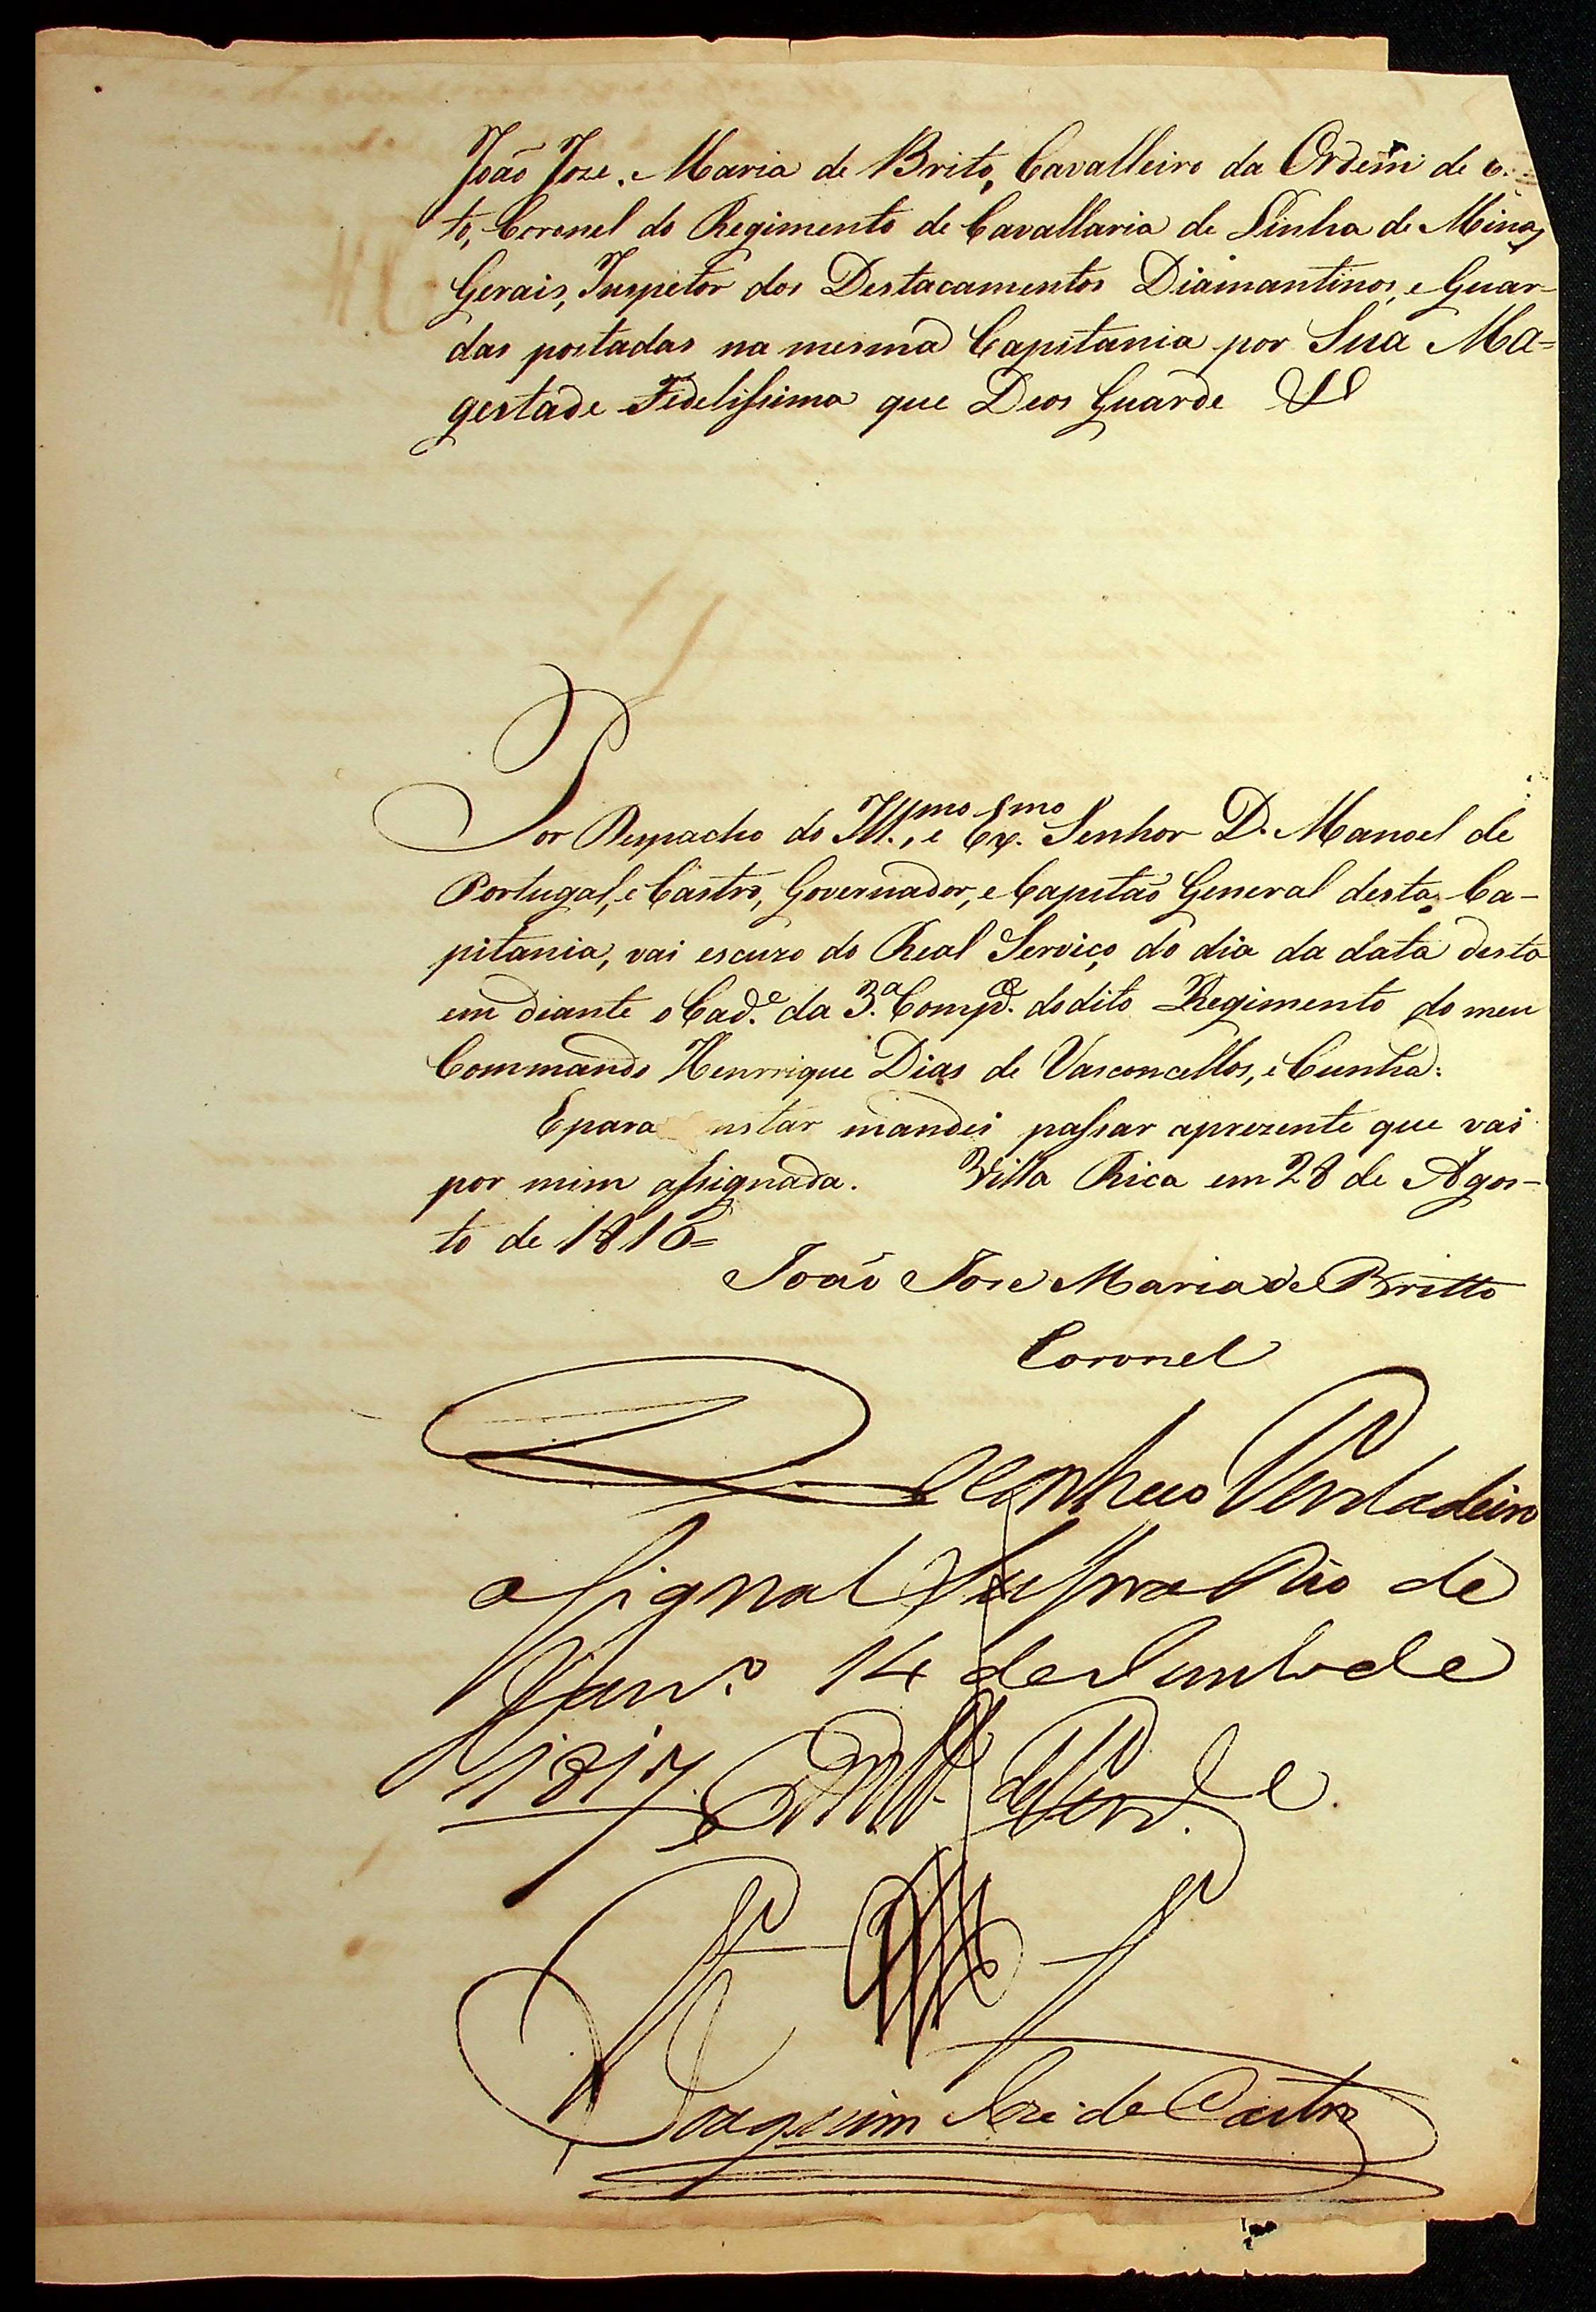 João Joze Maria de Brito, Cavalleiro da Ordem de
to, Coronel do Regimento de Cavallaria de Linha de Minas
Gerais, Inspetor dos Destacamentos Diamantinos, e Guar-
das postadas na mesma Capitania por Sua Ma=
gestade Fidelissima que Deos Guarde &
Por Despacho do Ill.mo, e Ex.mo Senhor D. Manoel de
Portugal, e Castro, Governador, e Capitão General desta Ca-
pitania, vai escuzo do Real Serviço do dia da data desta
em diante o Cad.e da 3.a Comp.a do dito Regimento do meu
Commando Henrrique Dias de Vasconcellos, e Cunha.
E para nstar mandei passar a prezente que vai
por mim assignada. Villa Rica em 28 de Agos-
to de 1816=
João Jose Maria de Britto
Coronel
Reconheco Verdadeiro
o Signal Supra Rio de
Janr.o 14 de Junho de
1817
Em de Verd.e
Joaquim Joze de Castro